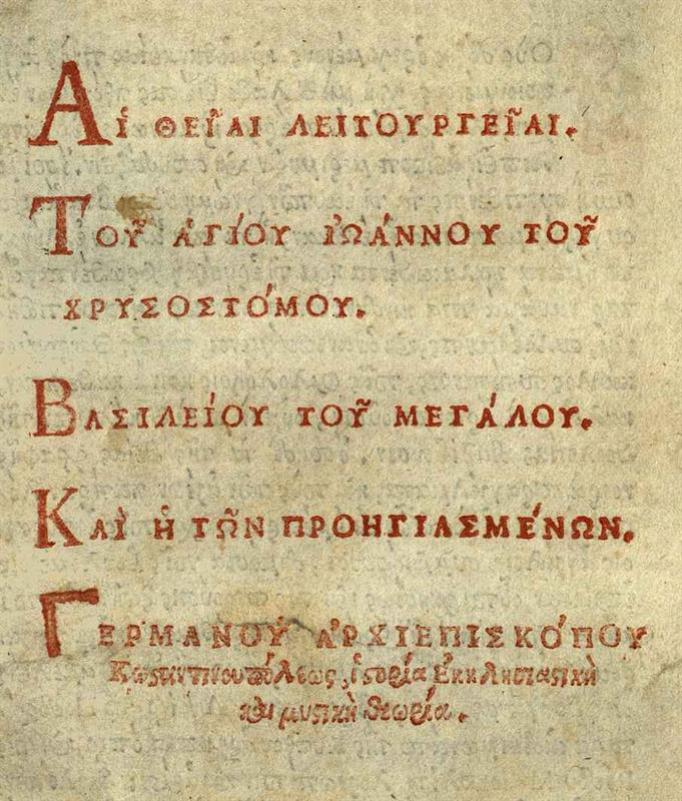 Αἱ θεῖαι λειτουργεῖαι.
Τοῦ ἁγίου Ἰωάννου τοῦ
χρυσοστόμου.
Βασιλείου τοῦ μεγάλου.
Καὶ ἡ τῶν προηγιασμένων.
Γερμανοῦ ἀρχιεπισκόπου
Κωσταντινουπόλεως, ἱστορία Ἐκκλησιαστικὴ
καὶ μυστικὴ θεωρία.